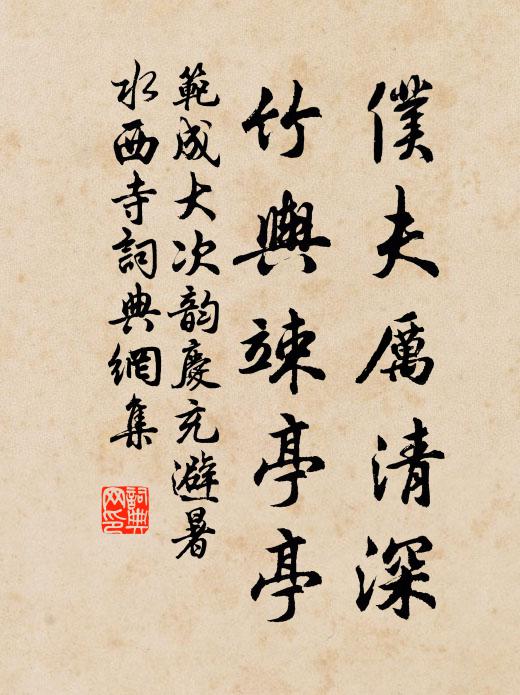 僕夫厲清深
竹輿竦亭亭
範成大次韵慶充避暑
水西寺詞典網集
詞典网印